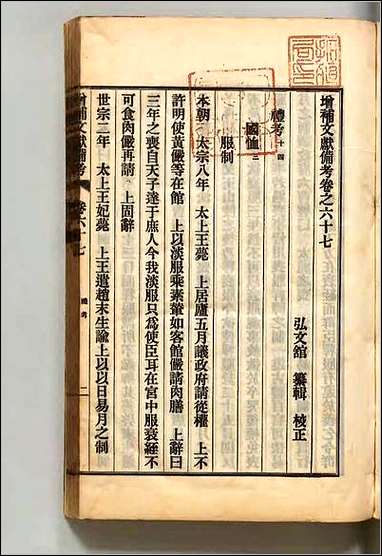 增補文獻備考卷之六十七
弘文館 纂輯 校正
禮考十四
國恤三
服制
本朝 太宗八年 太上王薨 上居廬五月議政府請從權 上不
許明使黃儼等在館 上以淡服乘素輦如客館儼請肉膳 上辭曰
三年之喪自天子達于庶人今我淡服只爲使臣耳在宮中服衰絰不
可食肉儼再請 上固辭
世宗二年 太上王妃薨 上王遣趙末生諭上以以日易月之制
增補文獻備考 卷六十七 禮考 一